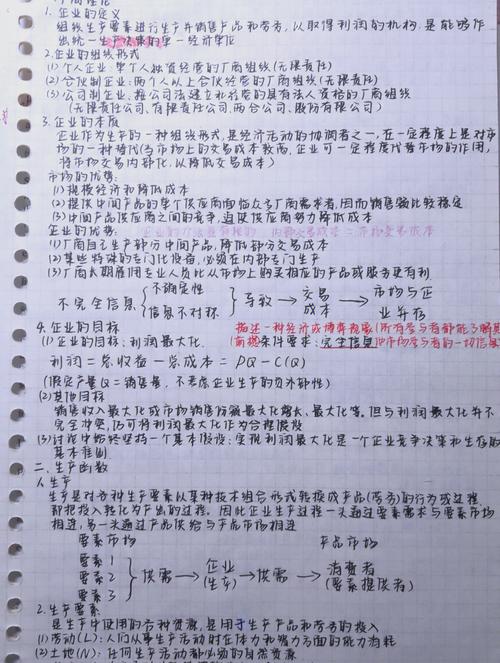 1. 企业的定义
组织生产要素进行生产并销售产品和劳务,以取得利润的机构,是能够作
出统一生产决策的单一经济单位
2.企业的组织形式
(1)个人企业:单个人独资经营的厂商组织(无限责任)
(2)合伙制企业:两个人以上合伙经营的厂商组织(无限责任)
(3)公司制企业:按公司法建立和经营的具有法人资格的厂商组织
(无限责任公司、有限责任公司、两合公司、股份有限公司)
3.企业的本质
企业作为生产的一种组织形式,是经济活动的协调者之一,在一定程度上是对市
场的一种替代(当市场上的交易成本较高,企业可一定程度代替市场的作用,
将市场交易内部化,以降低交易成本)
市场的优势:
(1)规模经济和降低成本
(2)提供中间产品的单个供应商面临众多厂商需求者,因而销售额比较稳定
(3)中间产品供应商之间的竞争,迫使供应商努力降低成本
企业的优势: 内部交易成本=市场交易成本
(1)厂商自己生产部分中间产品,降低部分交易成本
(2)某些特殊的专门化设备,必须在内部专门生产
(3)厂商长期雇用专业人员比从市场上购买相应的产品或服务更有利
不完全信息 { 不确定性 信息不对称 } 导致 → 交易成本 → 市场与企业并存
4.企业的目标 描述一种经济或博弈现象(所有参与者都能了解其
(1)企业的目标:利润最大化. 前提条件要求:完全信息他市场参与者的一切信息
利润=总收益-总成本=PQ-C(Q)
(假定产量Q=销售量,不考虑企业生产的负外部性)
(2)其他目标
销售收入最大化或市场销售份额最大化增长、最大化等。但与利润最大化并不
完全冲突,仍可将利润最大化作为合理假设
(3)讨论中始终坚持一个基本假设:实现利润最大化是一个企业竞争决策和生存的
基本准则
二、生产函数
1.生产
生产是对各种生产要素以某种技术组合形式转换成产品(劳务)的行为或过程
即把投入转化为产出的过程。因此企业生产过程一头通过要素需求与要素市场
相连,另一头通过产品供给与产品市场相连
要素市场 产品市场
要素1
要素2 } 供需 → 企业(生产) → 供需 → 消费者(要素提供者)
要素3
2.生产要素
是生产中使用的各种资源,是用于生产产品和劳务的投入
(1)劳动(L):人们从事生产活动时在体力和智力方面的能力消耗
(2)土地(N):任何生产活动都必须的自然资源